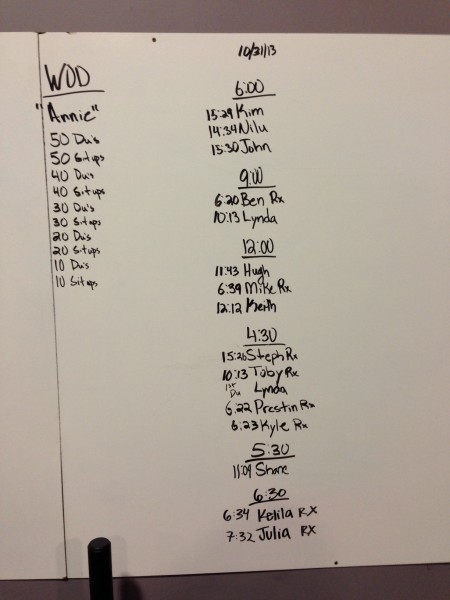 WOD
"Annie"
50 Du's
50 Situps
40 Du's
40 Situps
30 Du's
30 Situps
20 Du's
20 Situps
10 Du's
10 Situps
10/21/13
6:00
15:29 Kim
14:34 Nilu
15:30 John
9:00
6:20 Ben Rx
10:13 Lynda
12:00
11:43 Hugh
6:39 Mike Rx
12:12 Keith
4:30
15:20 Steph Rx
10:13 Toby Rx
1st Du Lynda
6:22 Prestin Rx
6:23 Kyle Rx
5:30
11:09 Shane
6:30
6:34 Kelila RX
7:32 Julia RX